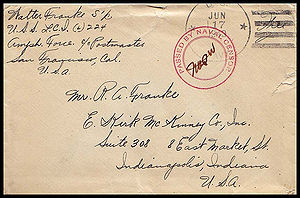 Walter Franke S 1/c
U.S.S. L.C.I. (L) 224
Amph. Force % Postmaster
San Francisco, Cal.
U.S.A.
U.S.
JUN
17
PASSED BY NAVAL CENSOR
Mr. R. A. Franke
E. Kirk McKinney Co., Inc.
Suite 308 8 East Market, St.
Indianapolis, Indiana
U.S.A.